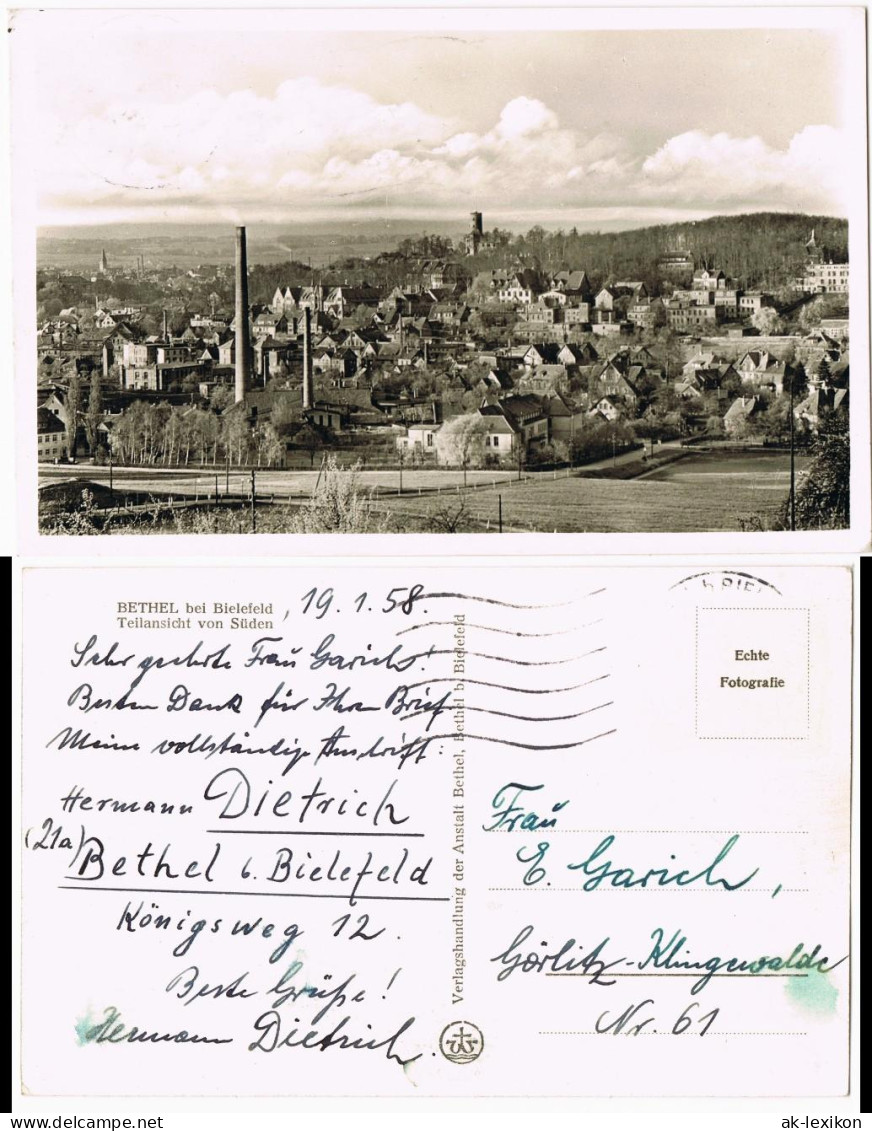 BETHEL bei Bielefeld
Teilansicht von Süden
, 19.1.58.
Sehr geehrte Frau Garich!
Besten Dank für Ihren Brief
Meine vollständige Anschrift:
Hermann Dietrich
(21a)
Bethel b. Bielefeld
Königsweg 12.
Beste Grüße!
Hermann Dietrich.
Verlagshandlung der Anstalt Bethel, Bethel b. Bielefeld
Echte
Fotografie
Frau
E. Garich,
Görlitz-Klingewalde
Nr. 61
ak-lexikon